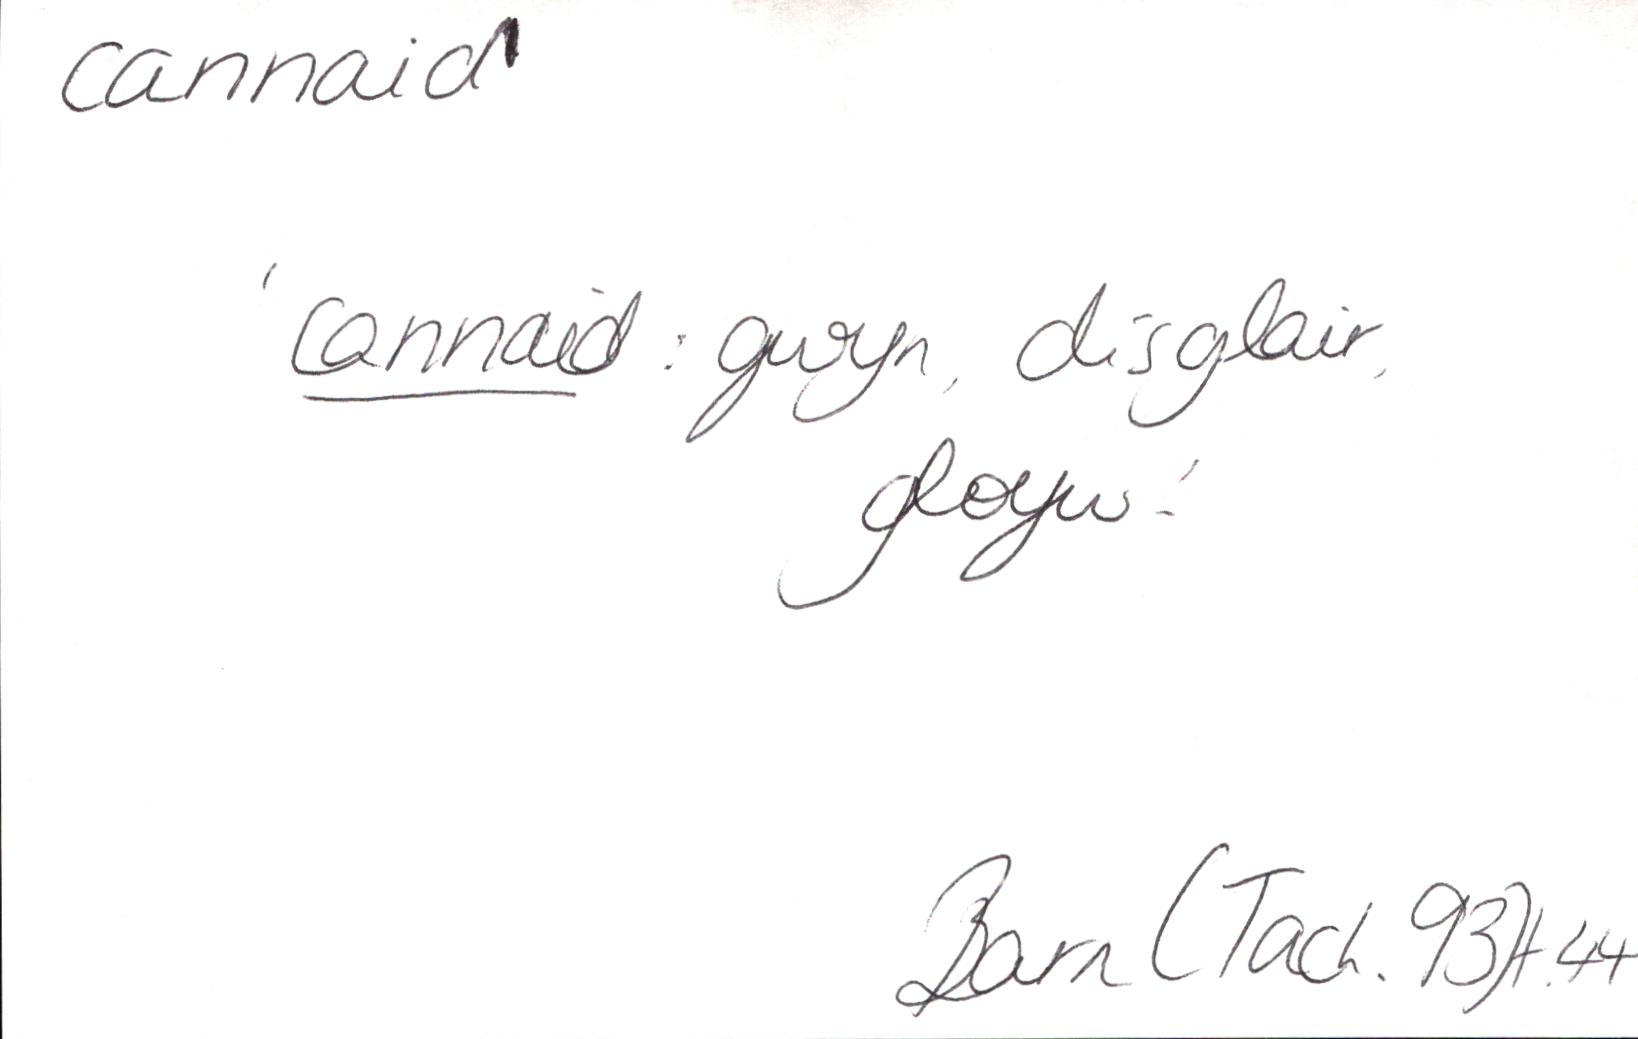 cannaid
'cannaid : gwyn, disglair,
gloyw.'
Barn (Tach. 93) t. 44